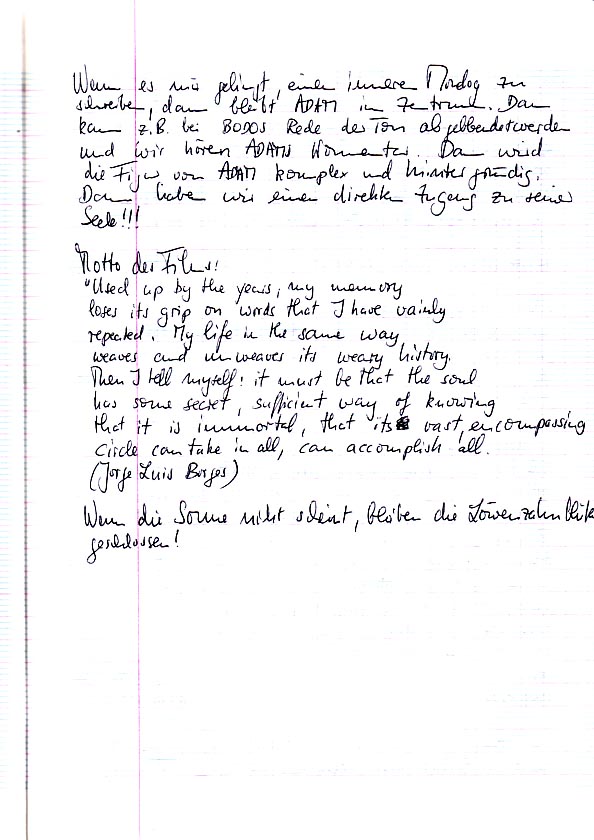 Wenn es mir gelingt, einen inneren Monolog zu
schreiben, dann bleibt ADAM im Zentrum. Dann
kann z.B. bei BODOS Rede der Ton abgeblendet werden
und wir hören ADAMS Kommentar. Dann wird
die Figur von ADAM komplex und hintergründig.
Dann haben wir einen direkten Zugang zu seiner
Seele!!!
Motto des Films:
"Used up by the years, my memory
loses its grip on words that I have vainly
repeated. My life in the same way
weaves and unweaves its weary history.
Then I tell myself: it must be that the soul
has some secret, sufficient way of knowing
that it is immortal, that its vast, encompassing
circle can take in all, can accomplish all.
(Jorge Luis Borges)
Wenn die Sonne nicht scheint, bleiben die
geschlossen!